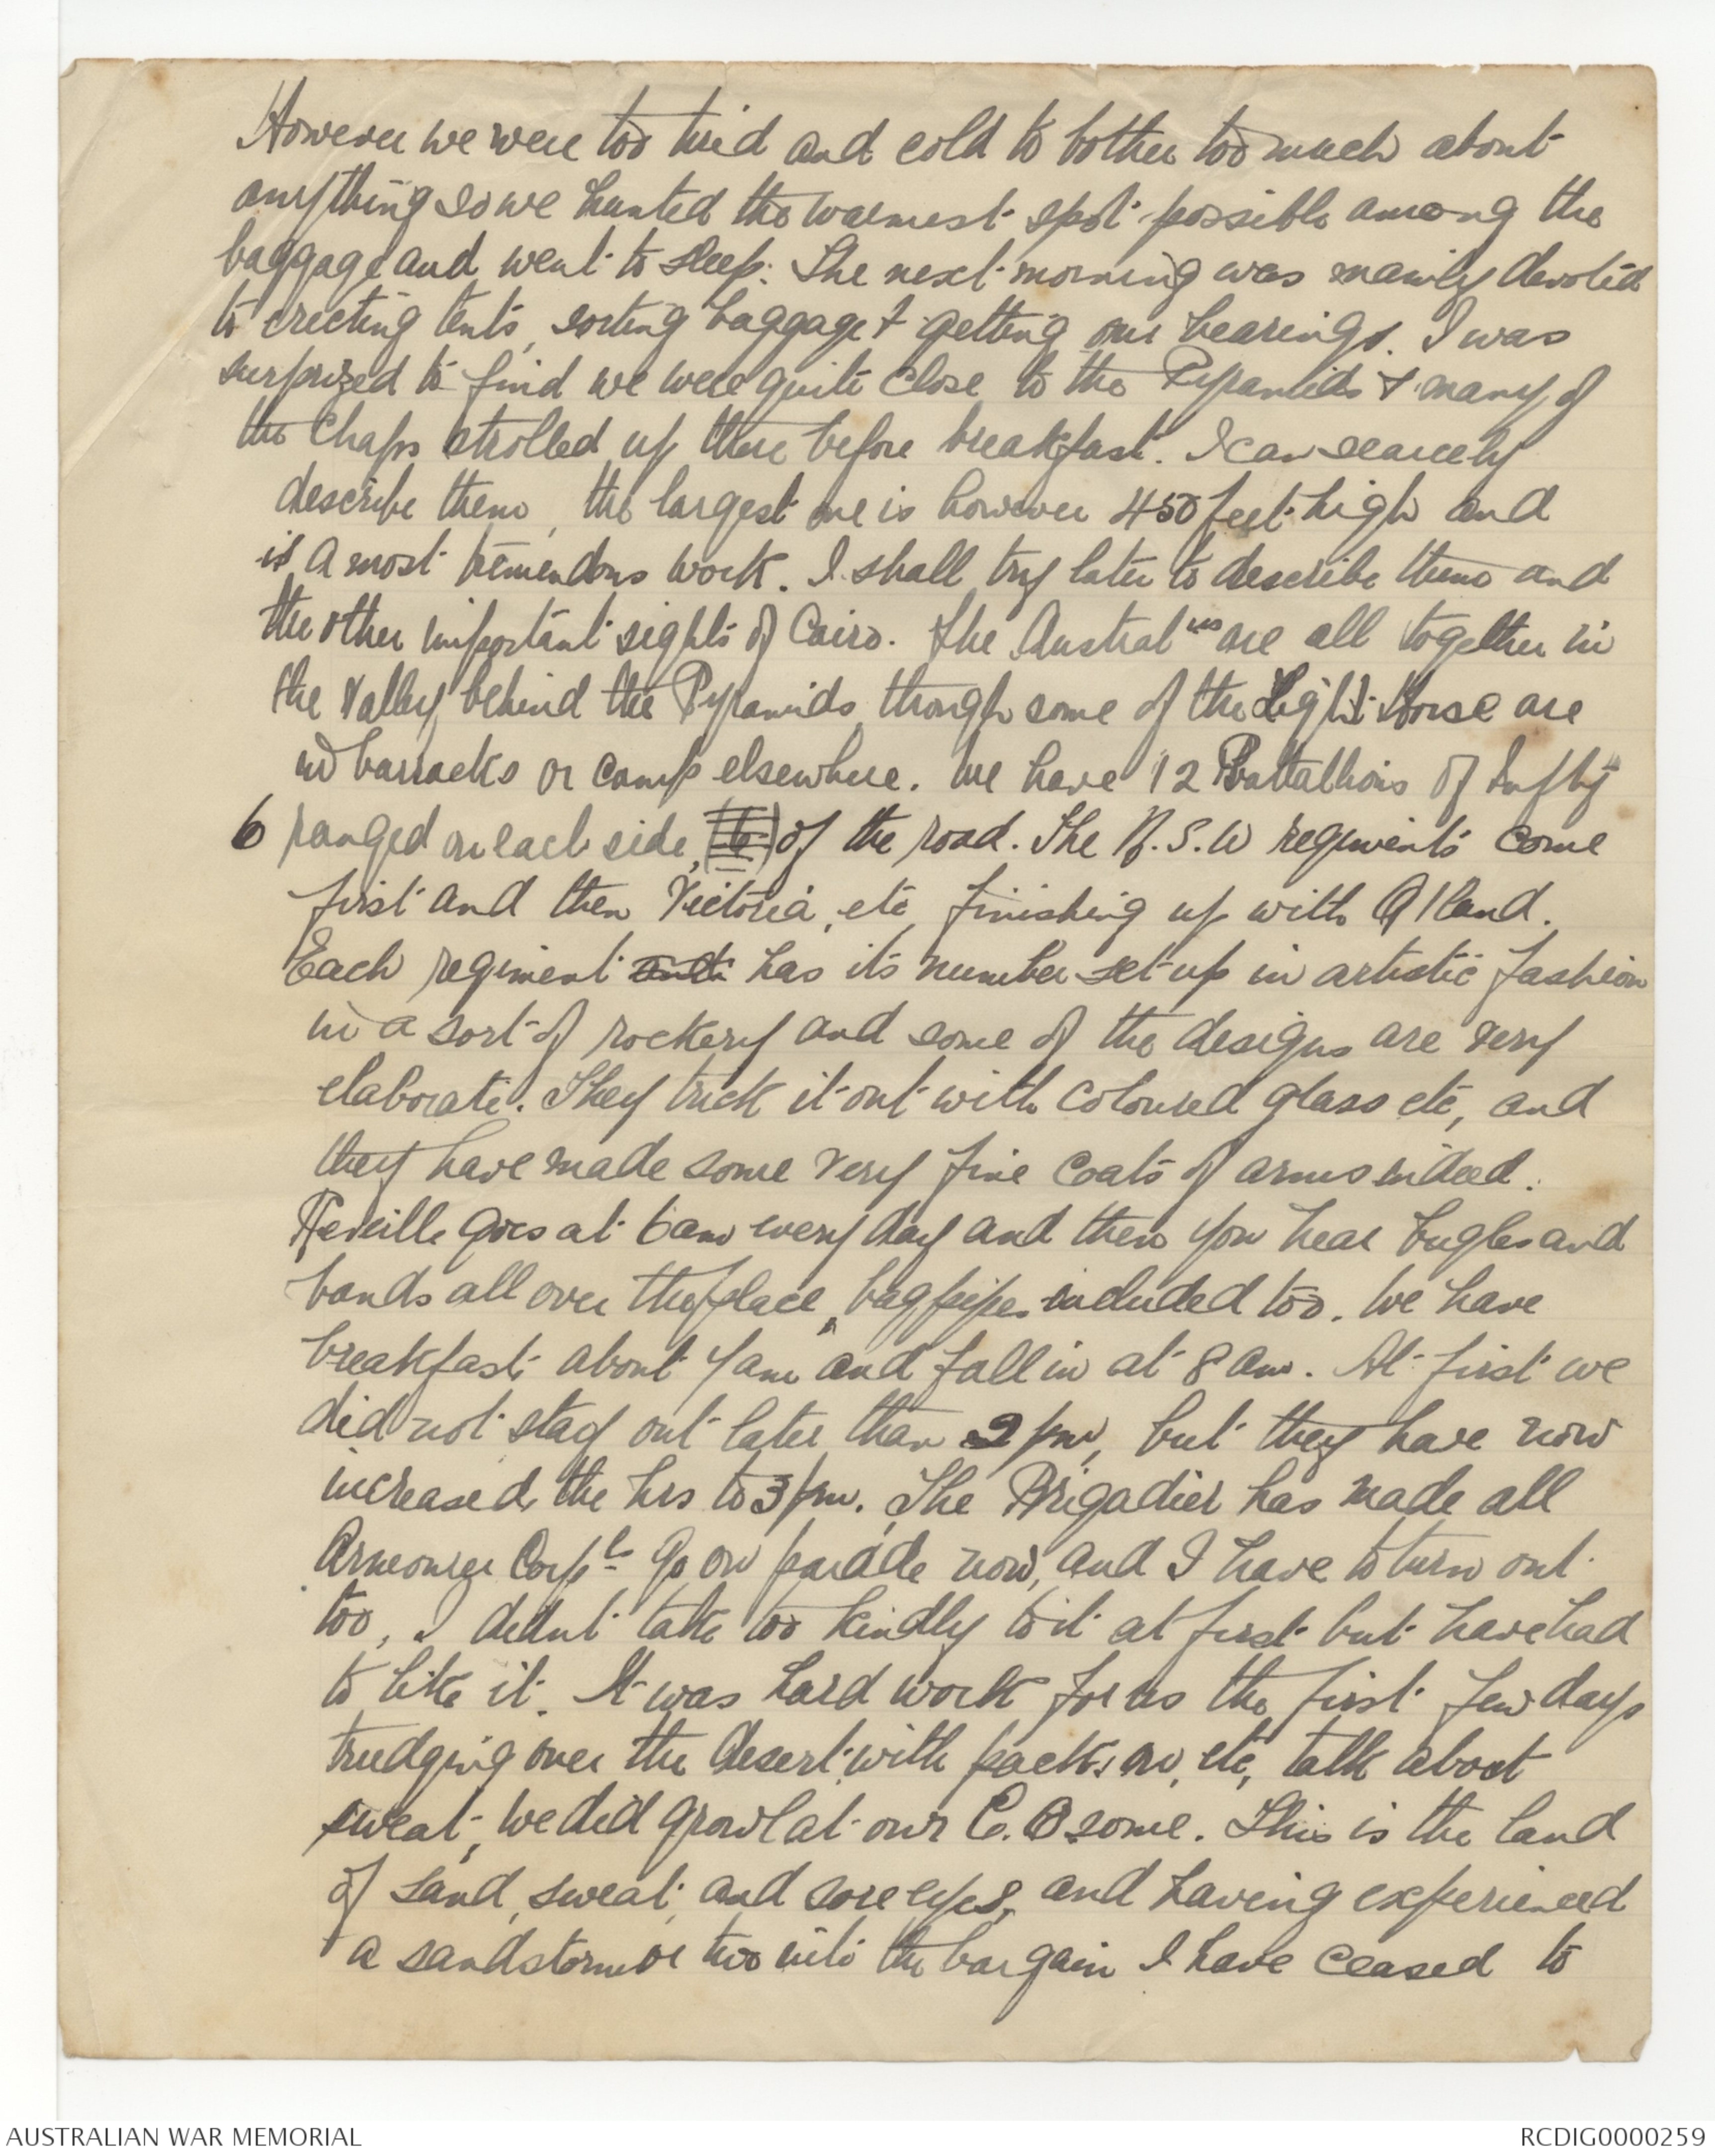 However we were too tired and cold to bother too much about
anything so we hunted the warmest spot possible among the
baggage and went to sleep. The next morning was mainly devoted
to erecting tents, sorting baggage & getting our bearings. I was
surprized to find we were quite close to the Pyramids & many of
the chaps strolled up there before breakfast. I can scarcely
describe them, the largest one is however 450 feet high and
is a most tremendous work. I shall try later to describe them and
the other important sights of Cairo. The Austral ns are all together in
the valley behind the Pyramids though some of the Light Horse are
in barracks or camp elsewhere. We have 12 Battallions of Inftry
6 ranged on each side, (6) of the road. The N.S.W regiments come
first and then Victoria, etc finishing up with Q/land.
Each regiment and has its number set up in artistic fashion
in a sort of rockery and some of the designs are very
elaborate. They trick it out with coloured glass etc, and
they have made some very fine coats of arms indeed.
Reveille goes at 6am every day and then you hear bugles and
bands all over the place, bagpipes included too. We have
breakfast about 7am and fall in at 8 am. At first we
did not stay out later than 2 pm, but they have now
increased the hrs to 3 pm. The Brigadier has made all
Armourer Corpls go on parade now, and I have to turn out
too, I didnt take too kindly to it at first but have had
to like it. It was hard work for us the first few days
trudging over the desert with packs on, etc, talk about
sweat, we did growl at our C.O some. This is the land
of sand, sweat, and sore eyes, and having experienced
a sandstorm or two into the bargain I have ceased to
AUSTRALIAN WAR MEMORIAL
RCDIG0000259